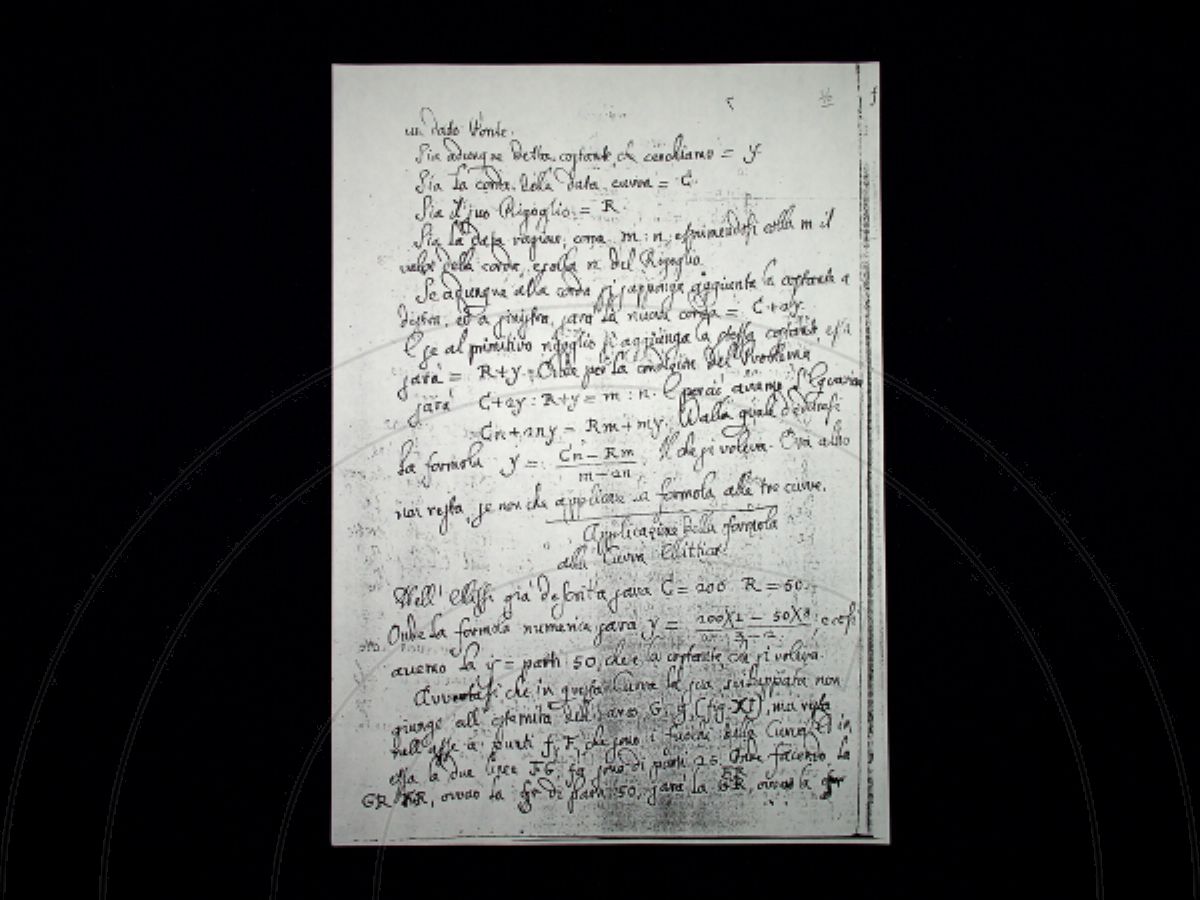 un dato Ponte.
Sia adunque detta costante, che cerchiamo = y
Sia la corda della data curva = C.
Sia il suo Rigoglio = R.
Sia la data ragione, come m : n, esprimendosi colla m il
valor della corda, e colla n del Rigoglio.
Se adunque alla corda si supponga aggiunta la costante a
destra, ed a sinistra, sarà la nuova corda = C+2y.
E se al primitivo rigoglio si aggiunga la detta costante, esso
sarà = R+y. Onde per la condizione del Problema,
sarà C+2y : R+y = m : n. E perciò avremo l'Equazione
Cn + 2ny = Rm + my. Dalla quale deducesi
la formola y = Cn - Rm / m - 2n. Il che si voleva. Ora altro
non resta, se non che applicare la formola alle tre curve.
Applicazione della formola
alla Curva Ellittica.
Nell' Ellisse già descritta sarà C = 200. R = 50.
Onde la formola numerica sarà y = 200X1 - 50X3 / 3 - 2; e così
avremo la y = parti 50, che è la costante che si voleva.
Avvertasi che in questa Curva la sua sviluppata non
giunge all' estremità dell' arco G, g, (fig. XI), ma resta
nell' asse a' punti f, F, che sono i fuochi della Curva. Ed in
essa le due linee FG, fg sono di parti 25. Onde facendo la
GR, ovvero la gr di parti 50, sarà la FR, ovvero la fr